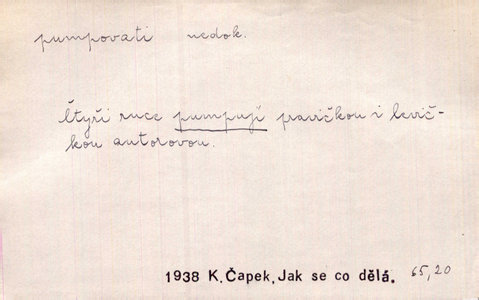 pumpovati nedok.
čtyři ruce pumpují pravičkou i levič-
kou autorovou.
1938 K. Čapek, Jak se co dělá. 65,20